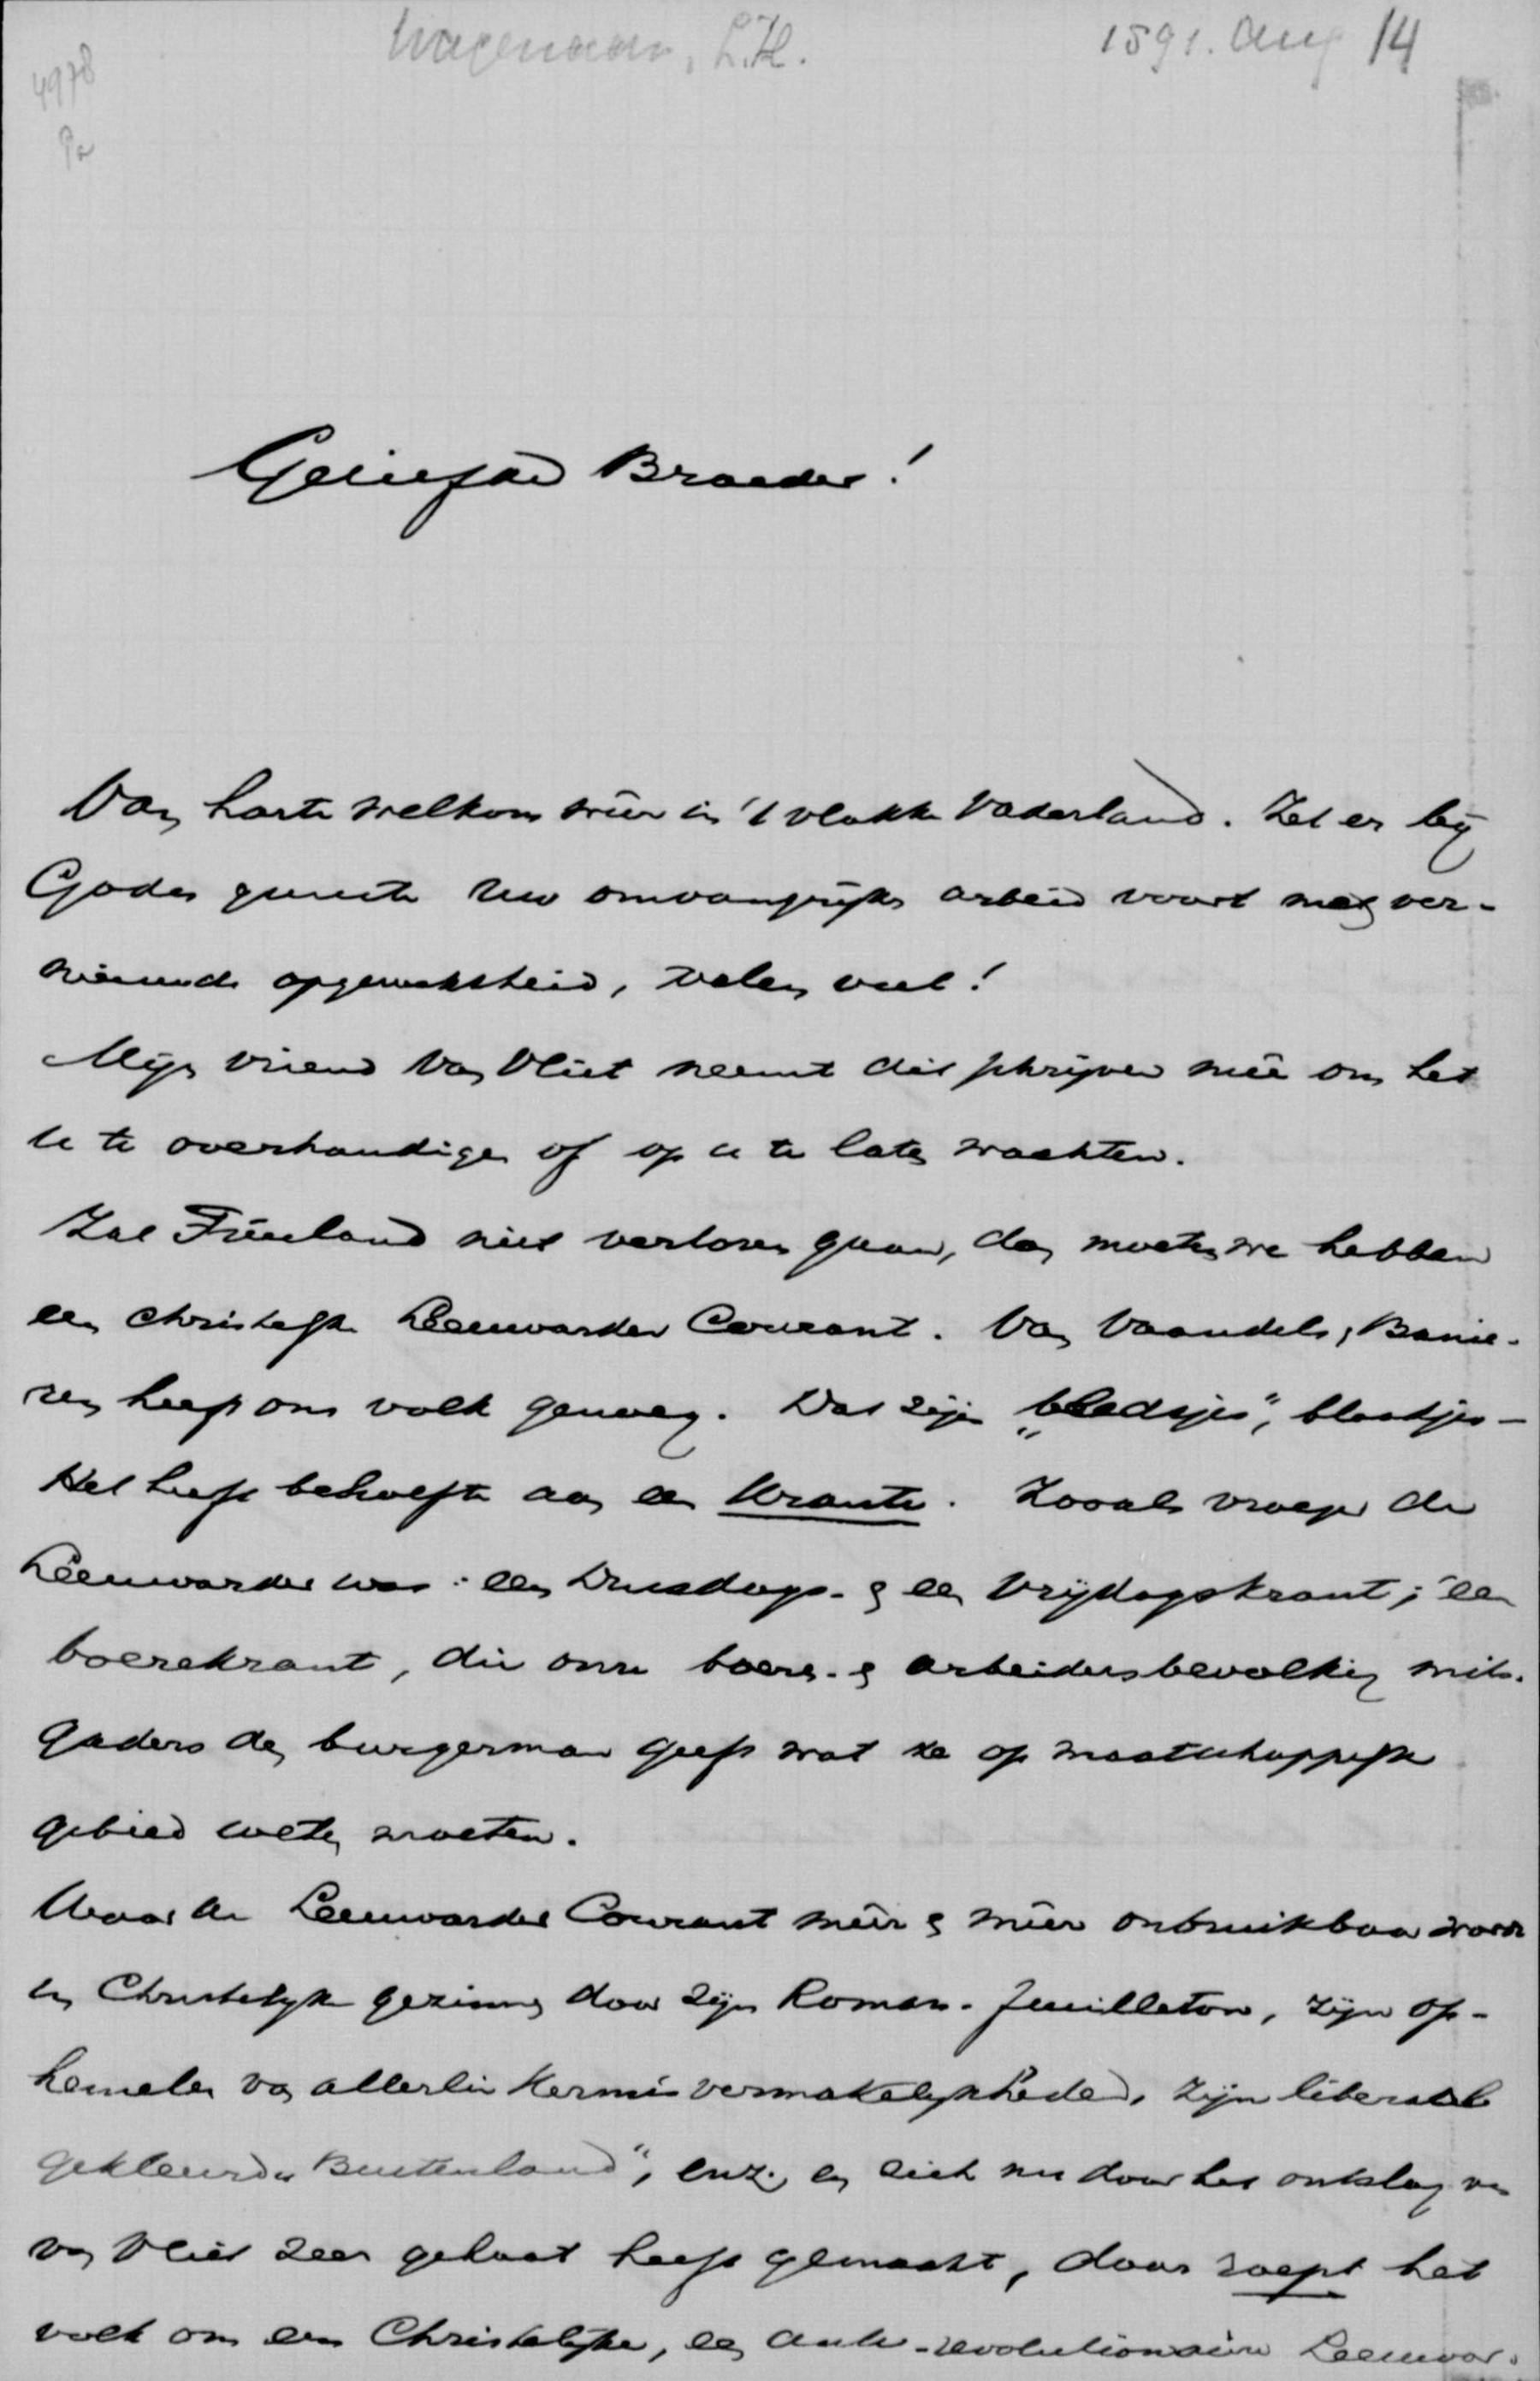 Wagenaar, L.H.
1891. Aug 14
4978
Pa
Geliefde Broeder!
Van harte welkom wêer in 't vlakke Vaderland. Zet er bij
Godes gunste Uw omvangrijke arbeid voort met ver-
nieuwde opgewektheid, velen veel!
Mijn vriend Van Vliet neemt dit schrijven mêe om het
U te overhandigen of op U te laten wachten.
Zal Friesland niet verloren gaan, dan moeten we hebben
een christelijke Leeuwarder Courant. Van Vaandels, Banie-
ren heeft ons volk genoeg. Dat zijn „bledsjes", blaadjes —
Het heeft behoefte aan een Krante. Zooals vroeger de
Leeuwarder was: een Dinsdags- & een Vrijdagskrant; een
boerekrant, die onze boeren- & arbeidersbevolking mits-
gaders den burgerman geeft wat ze op maatschappelijk
gebied weten moeten.
Waar de Leeuwarder Courant mêer & mêer onbruikbaar wordt
in Christelijke gezinnen door zijn Roman-feuilleton, zijn op-
hemelen van allerlei Kermisvermakelijkheden, zijn liberaal
gekleurde „Buitenland", enz., en zich nu door het ontslag van
van Vliet zeer gehaat heeft gemaakt, daar roept het
volk om een Christelijke, een anti-revolutionaire Leeuwar-